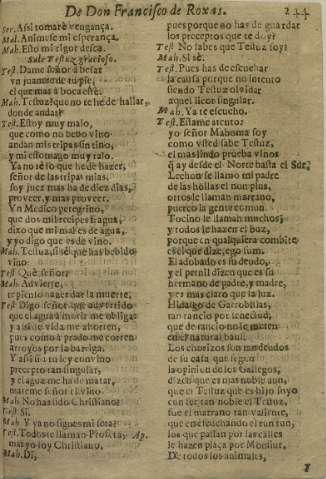 De Don Francisco de Roxas. 244
Ser. Assi tomarè vengança.
Mal. Ansi muere mi esperança.
Mah. Esto mi rigor desea.
Sale Testuz gracioso.
Tes. Dame señor a besar
vn juanete de tu pie,
el que mas a boca estè.
Mah. Testuz? que no te he de hallar,
donde andas?
Tes. Estoy muy malo,
que como no bebo vino
andan mis tripas sin tino,
y mi estomago muy ralo.
Ya no sè lo que he de hazer,
señor de las tripas mias,
soy juez mas ha de diez dias,
proveer, y mas proveer.
Vn Medico peregrino,
que dos mil recipes fragua,
dixo que mi mal es de agua,
y yo digo que es de vino.
Mah. Testuz, si sè que has bebido
vino.
Tes. Què señor?
Mah. Advierte,
Tes. Digo señor que advertido
que el agua à morir me obliga
y assi de vida me ahorren,
pues como à prado me corren
arroyos por la barriga.
precepto tan singular,
y el agua me ha de matar,
mateme señor el vino.
Mah. No has sido Christiano?
Tes. Si.
Mah. Y ya no sigues mi seta?
Tes. Todos te llaman Profeta, y
mas yo soy Christiano,
Mah. Di,
pues porque no has de guardar
los preceptos que te doy?
Tes. No sabes que Testuz soy?
Mah. Si sè.
Tes. Pues has de escuchar
la causa porque no intento
siendo Testuz olvidar
aquel licor singular.
Mah. Ya te escucho.
Tes. Estame atento:
yo señor Mahoma soy
como vsted sabe Testuz,
el mas lindo prueba vinos
q ay desde el Norte hasta el Sur.
Lechon se llamò mi padre
de las hollas el non plus,
otros le llaman marrano,
puerco la gente comun.
Tocino le llaman muchos,
y todos le hazen el buz,
porque en qualquiera combite
es el que dize, ego sum.
El adobado es su deudo,
y el pernil dizen que es su
hermano de padre, y madre,
y es mas claro que la luz.
Hidalgo de Garrobillas,
tan rancio por senectud,
que de rancio no le meten
en el natural baul.
Los chorizos son menudos
de su casa que segun
la opinion de los Gallegos,
dizen que es mas noble aun,
que el Testuz que es hijo suyo
con ser tan noble el Testuz,
fue el marrano tan valiente,
que en escuchando el run run,
los que passan por las calles
le hazen plaça por Monsiur,
De todos los animales,